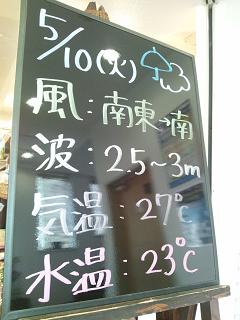 5/10(火)
風:南東→南
波:2.5~3m
気温:27℃
水温:23℃